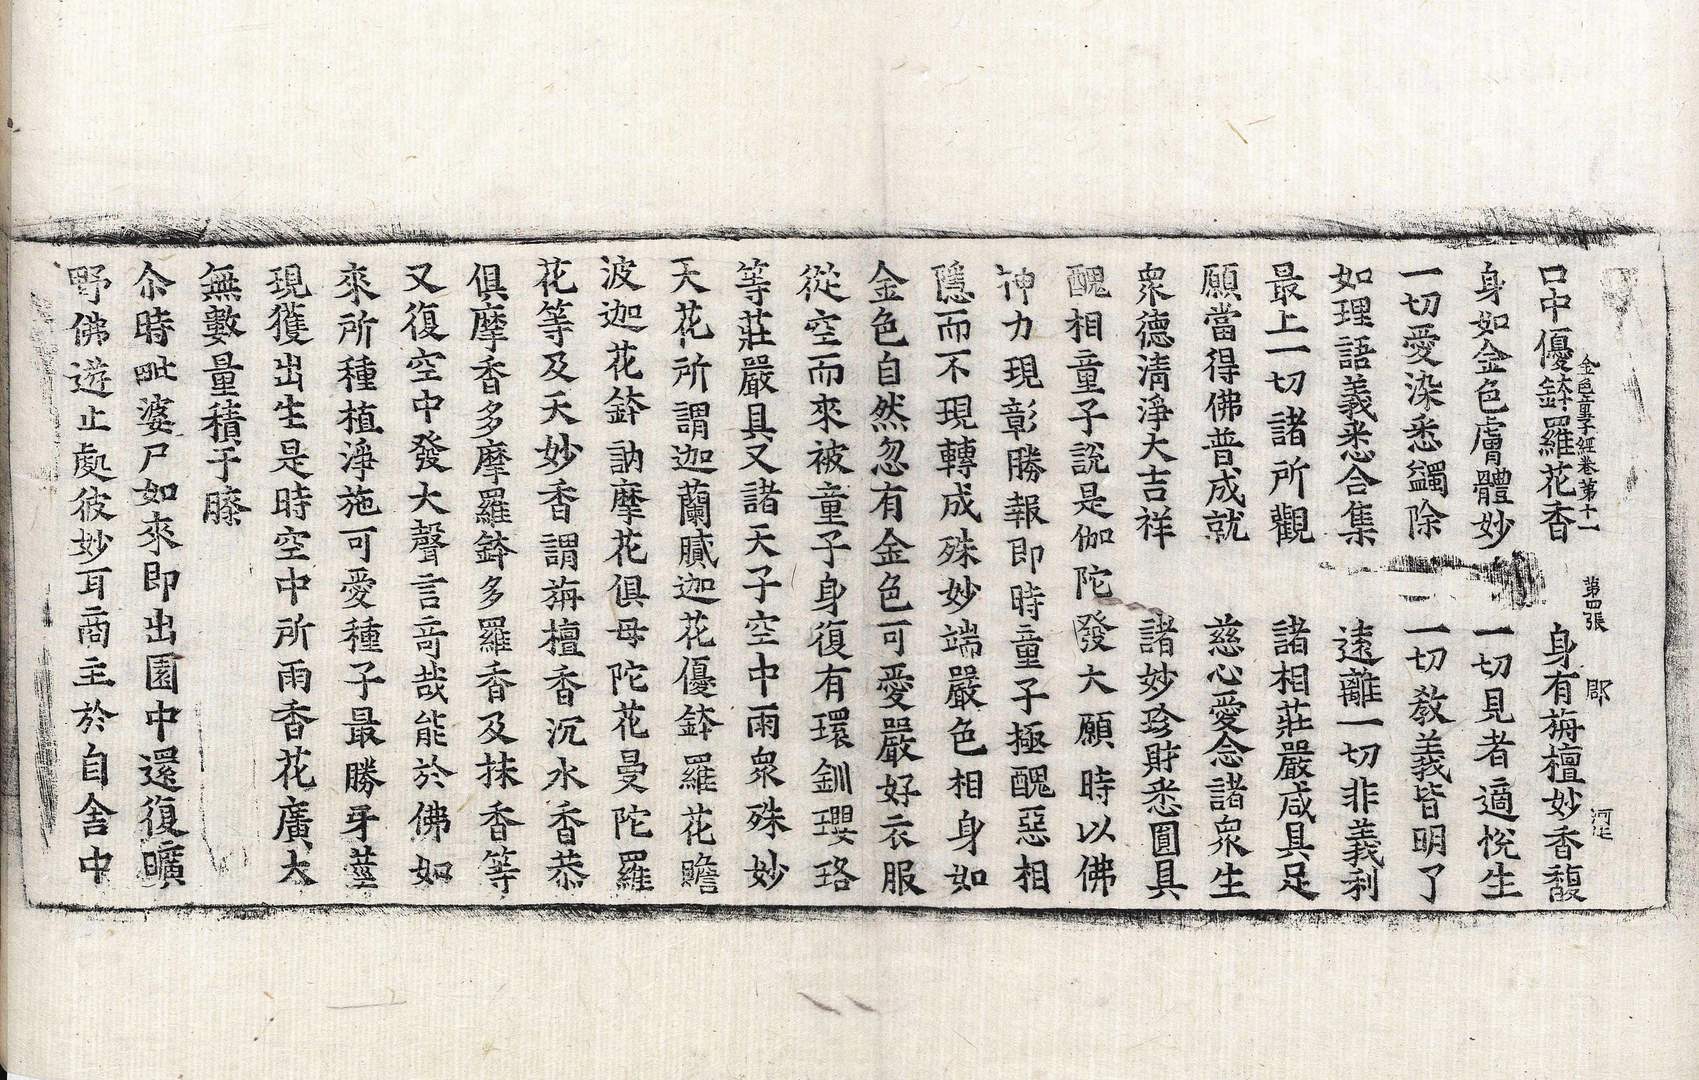 金色童子經卷第十一 第四張 郡
口中優鉢羅花香 身有栴檀妙香馥
身如金色膚體妙 一切見者適悅生
一切愛染悉蠲除 一切教義皆明了
如理語義悉合集 遠離一切非義利
最上一切諸所觀 諸相莊嚴咸具足
願當得佛普成就 慈心愛念諸衆生
衆德淸淨大吉祥 諸妙珍財悉圓具
醜相童子說是伽陀發大願時以佛
神力現彰勝報即時童子極醜惡相
隱而不現轉成殊妙端嚴色相身如
金色自然忽有金色可愛嚴好衣服
從空而來被童子身復有環釧瓔珞
等莊嚴具又諸天子空中雨衆殊妙
天花所謂迦蘭膩迦花優鉢羅花瞻
波迦花鉢訥摩花俱母陀花曼陀羅
花等及天妙香謂栴檀香沉水香恭
俱摩香多摩羅鉢多羅香及抹香等
又復空中發大聲言奇哉能於佛如
來所種植淨施可愛種子最勝牙莖
現獲出生是時空中所雨香花廣大
無數量積于膝
尒時毗婆尸如來即出園中還復曠
野佛遊止處彼妙耳商主於自舍中